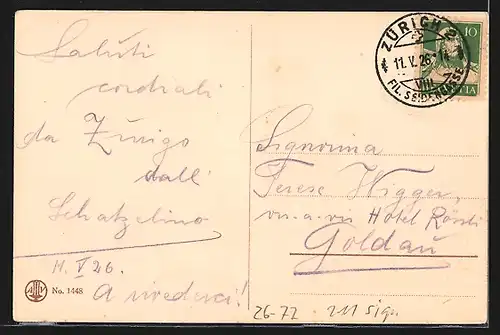 Saluti
cordiali
da Zurigo
dall'
Schatzelino
11. V 26.
A rivederci!
No. 1448
ZÜRICH
11.V.26
VIII
FIL. SEIDENGASSE
10
Signorina
Terese Wigger,
vis-a-vis Hôtel Rössli
Goldau
26-72 211 sign.